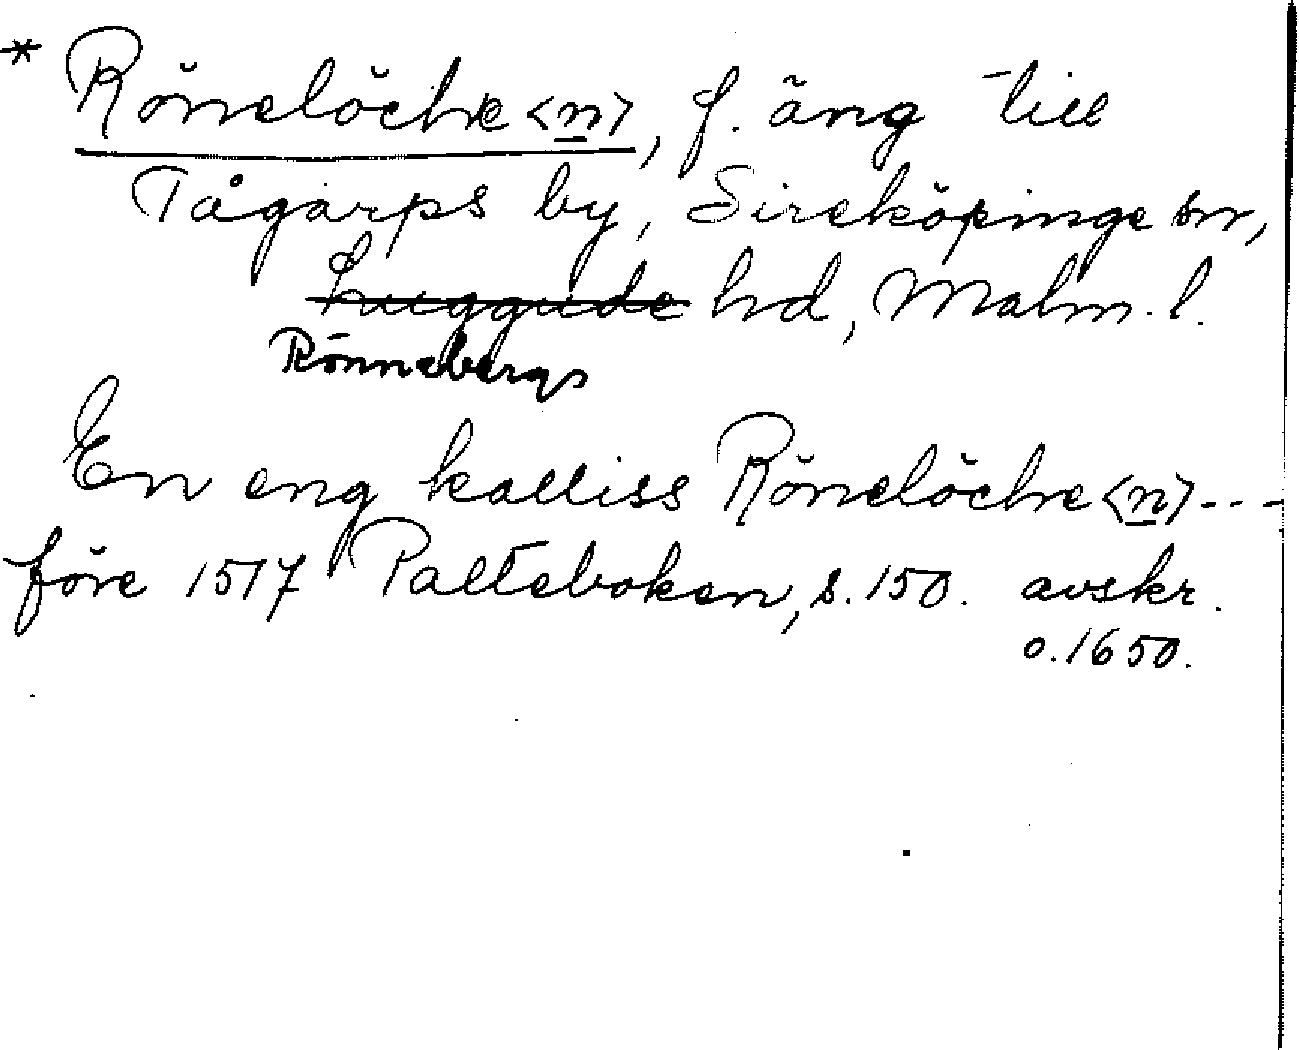 * Rönelöche<n>, f. äng till
Tågarps by, Sireköpinge sn,
Luggude hd, Malm. l.
Rönnebergs
En eng kalliss Rönelöche<n>---
före 1517 Palteboken, s. 150. avskr.
o. 1650.